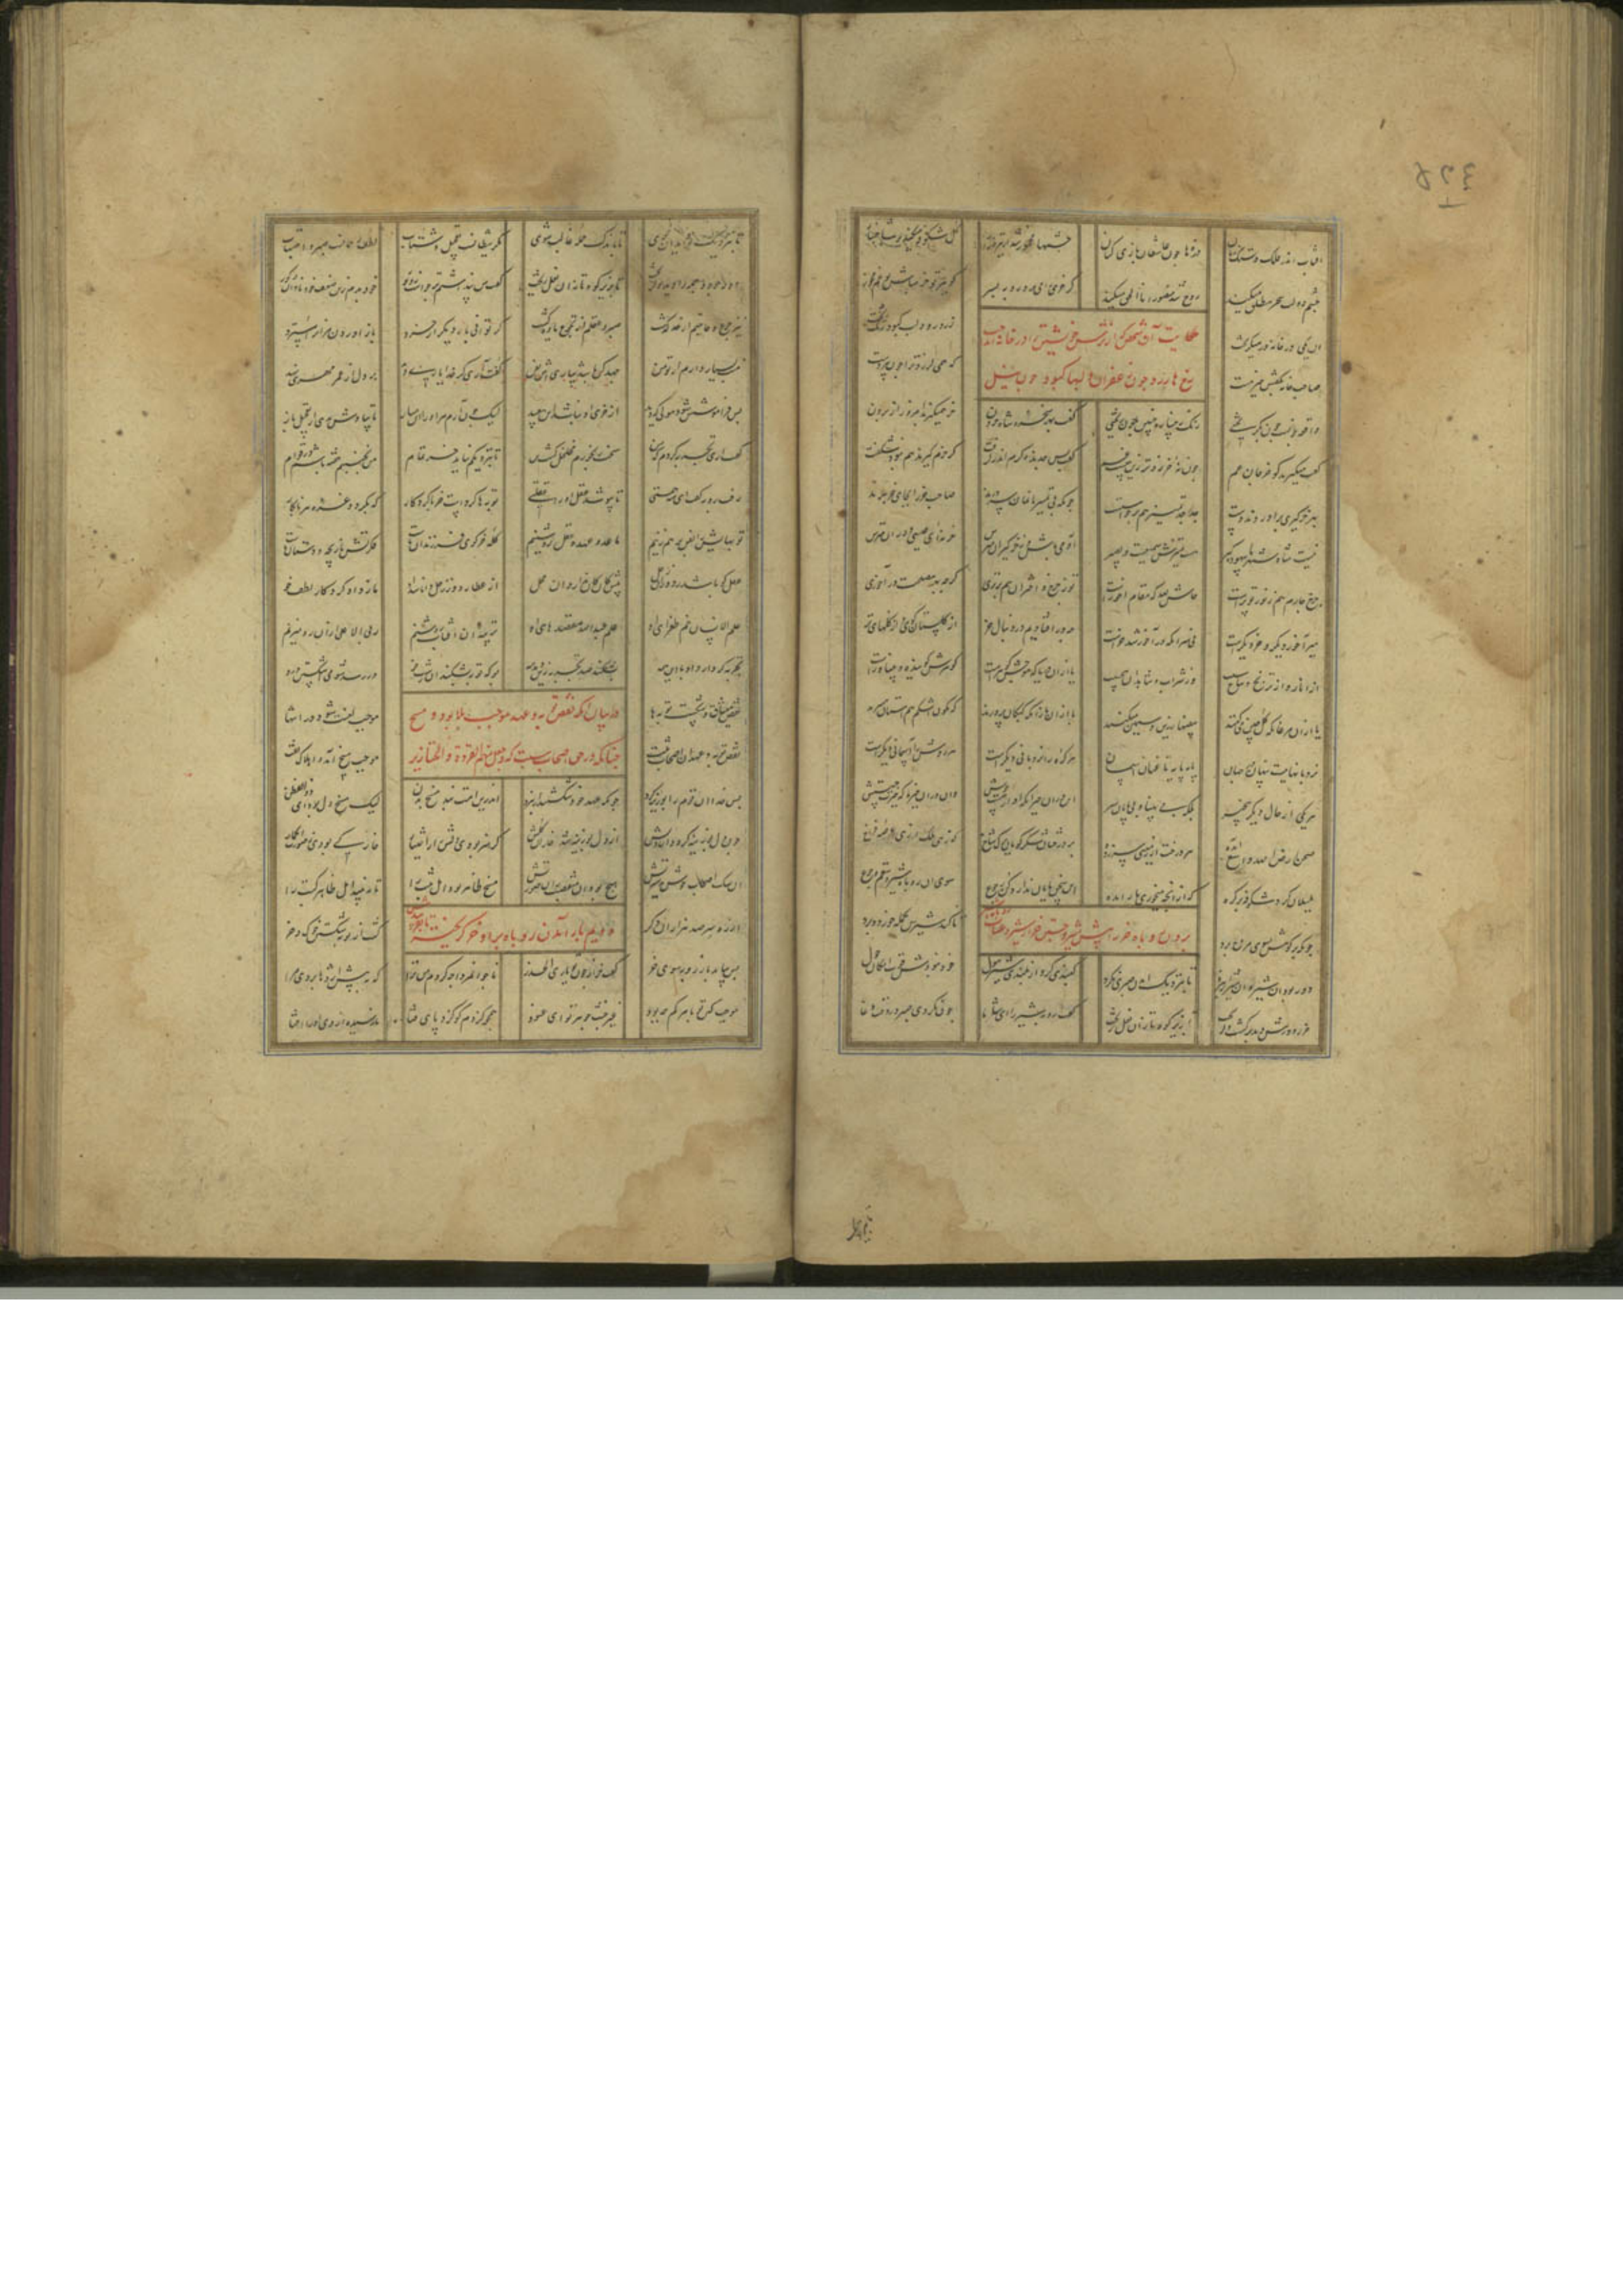 آفتاب اندر فلک دستک زنان ذرها چون عاشقان بازی کنان چشمها مخمور شد از سبزه زار گل شکوفه میکند بر شاخسار
چشم دولت سحر مطلق میکند روح شد منصور انا الحق میکند گر خری را میبرد روبه ز سر گو ببر تو خر مباش و غم مخور
حکایت آن شخص کز ترس خویشتن را در خانه انداخت
رخ ها زرد چون زعفران لبها کبود چون نیل
آن یکی در خانه در میگریخت زرد رو و لب کبود و رنگ ریخت
صاحب خانه بگفتش خیر هست که همی لرزد ترا چون پیر دست
واقعه چونست چون بگریختی رنگ رخساره چنین چون ریختی گفت بهر سخره شاه حرون خر همیگیرند امروز از برون
گفت میگیرند کو خر جان عم چون نه خر رو ترا زین چیست غم گفت بس جدند و گرم اندر گرفت گر خرم گیرند هم نبود شگفت
بهر خرگیری برآوردند دست جد جد تمییز هم برخاستست چونکه بی تمییزیانمان سرورند صاحب خر را بجای خر برند
نیست شاه شهر ما بیهوده گیر هست تمییزش سمیعست و بصیر آدمی باش و ز خرگیران مترس خر نه ای عیسی دوران مترس
چرخ چارم هم ز نور تو پرست حاش لله که مقامت آخرست تو ز چرخ و اختران هم برتری گرچه بهر مصلحت در آخری
میر آخر دیگر و خر دیگرست نی هر آنکه در آخر شد خرست چه در افتادیم در دنبال خر از گلستان گوی و از گلهای تر
از انار و از ترنج و شاخ سیب وز شراب و شاهدان بی حسیب یا از آن دریا که موجش گوهرست گوهرش گوینده و بیناورست
یا از آن مرغان که گلچین میکنند بیضها زرین و سیمین میکنند یا از آن بازان که کبکان پرورند هم نگون اشکم هم استان میپرند
نردبانهاییست پنهان در جهان پایه پایه تا عنان آسمان هر گره را نردبانی دیگرست هر روش را آسمانی دیگرست
هر یکی از حال دیگر بی خبر ملک با پهنا و بی پایان و سر این در آن حیران که او از چیست خوش وان در این خیره که حیرت چیستش
صحن ارض الله واسع آمده هر درختی از زمینی سر زده بر درختان شکر گویان برگ و شاخ که زهی ملک و زهی عرصه فراخ
بلبلان گرد شکوفه پر گره که از آنچه میخوری ما را بده این سخن پایان ندارد کن رجوع سوی آن روباه و شیر و سقم و جوع
بردن روباه خر را پیش شیر و جستن خر از شیر
چونکه بر کوهش بسوی مرج برد تا کند شیرش بحمله خرد و مرد
دور بود از شیر و آن شیر از نبرد تا بنزدیک آمدن صبری نکرد گنبدی کرد از بلندی شیر هول خود نبودش قوت و امکان حول
خر ز دورش دید و برگشت و گریخت تا بزیر کوه تازان نعل ریخت گفت روبه شیر را ای شاه ما چون نکردی صبر در وقت وغا
تا بنزدیک تو آید آن غوی تا باندک حمله غالب شوی مکر شیطانست تعجیل و شتاب لطف رحمانست صبر و احتساب
دور بود و حمله را دید و گریخت تا بزیر کوه تازان نعل ریخت گفت من پنداشتم بر جاست زور خود بدم زین ضعف خود نادان و کور
نیز جوع و حاجتم از حد گذشت صبر و عقلم از تجوع یاوه گشت گر توانی بار دیگر از خرد باز آوردن مر او را مسترد
منت بسیار دارم از تو من جهد کن باشد بیاری اش بفن گفت آری گر خدا یاری دهد بر دل او از عمی مهری نهد
پس فراموشش شود هولی که دید از خری او نباشد این بعید لیک چون آرم من او را بر متاز تا ببادش ندهی از تعجیل باز
گفت آری تجربه کردم که من سخت رنجورم مخلخل گشته تن تا بنزدیکم نیاید خر تمام من نجنبم خفته باشم در قوام
رفت روبه گفت ای شه همتی تا بپوشد عقل او را غفلتی توبها کردست خر با کردگار که نگردد غره هر نابکار
توبهایش را بفن بر هم زنیم ما عدو عهد و عقل روشنیم کله خر گوی فرزندان ماست فکرتش بازیچه دستان ماست
عقل کان باشد ز دوران زحل پیش عقل کل ندارد آن محل از عطارد وز زحل دانا شد او ما ز داد کردگار لطف خو
علم الانسان خم طغرای ما علم عند الله مقصدهای ما تربیه آن آفتاب روشنیم ربی الاعلی از آن رو میزنیم
تجربه گر دارد او با این همه بشکند صد تجربه زین دمدمه بو که توبه بشکند آن سست خو در رسد شومی اشکستن درو
در بیان آنکه نقض توبه و عهد موجب بلا بود و مسخ
چنانکه در حق اصحاب سبت که و جعل منهم القردة و الخنازیر
نقض میثاق و شکست توبها موجب لعنت شود در انتها
نقض توبه و عهد آن اصحاب سبت موجب مسخ آمد و اهلاک و مقت
پس خدا آن قوم را بوزینه کرد چونکه عهد حق شکستند از نبرد اندرین امت نبد مسخ بدن لیک مسخ دل بود ای ذوالفطن
چون دل بوزینه گردد آن دلش از دل بوزینه شد خوار آن گلش گر هنر بودی دلش را ز اختیار خوار کی بودی ز صورت آن حمار
آن سگ اصحاب خوش بد سیرتش هیچ بودش منقصت زان صورتش مسخ ظاهر بود اهل سبت را تا ببیند خلق ظاهر کبت را
از ره سر صد هزاران دگر گشته از توبه شکستن خوک و خر
دویم بار آمدن روباه بر او خر گریخته تا باز بردش
پس بیامد زود روبه سوی خر گفت خر از چون تو یاری الحذر ناجوانمردا چه کردم من ترا که بپیش اژدها بردی مرا
موجب کین تو با جانم چه بود غیر خبث جوهر تو ای عنود همچو کژدم کو گزد پای فتا نارسیده از وی او را